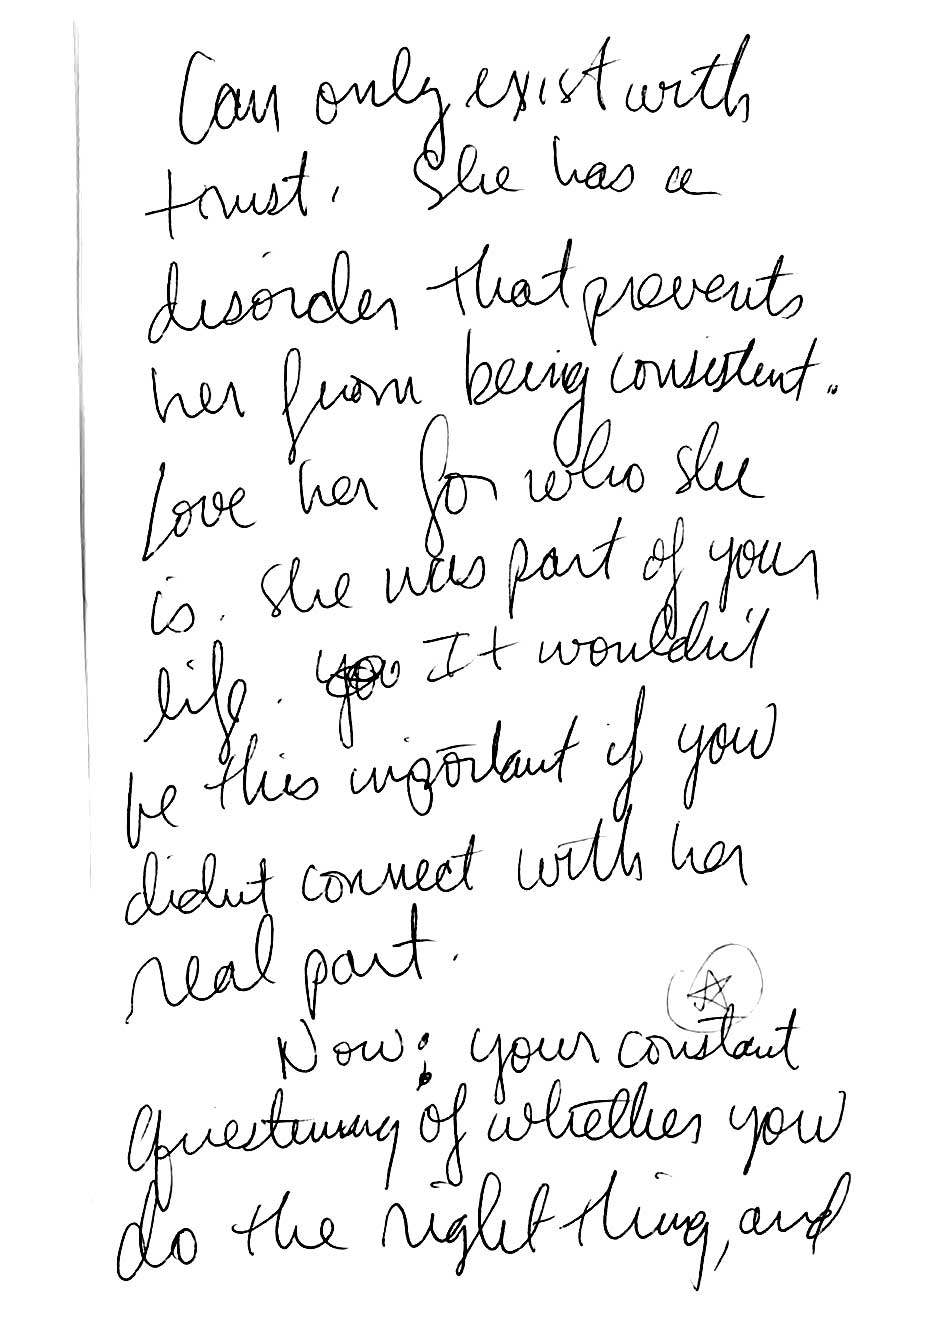 Can only exist with
trust. She has a
disorder that prevents
her from being consistent..
Love her for who she
is. She was part of your
life. you It wouldn't
be this important if you
didn't connect with her
real part.
Now: your constant
questioning of whether you
do the right thing, and